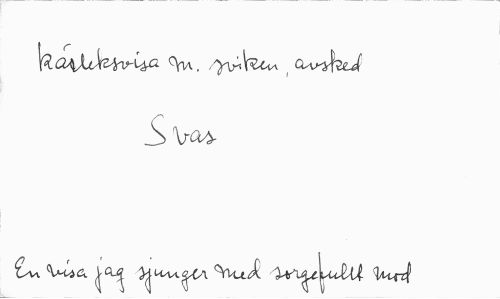 kärleksvisa m. sviken, avsked
Svas
En visa jag sjunger med sorgefullt mod